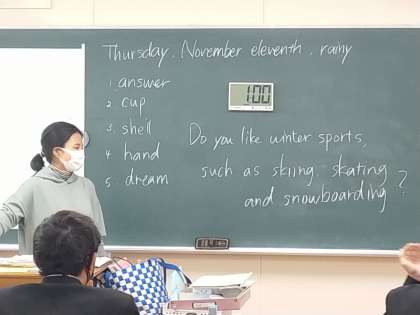 Thursday, November eleventh, rainy
1. answer
2. cup
3. shell
4. hand
5. dream
1:00
Do you like winter sports,
such as skiing, skating
and snowboarding?